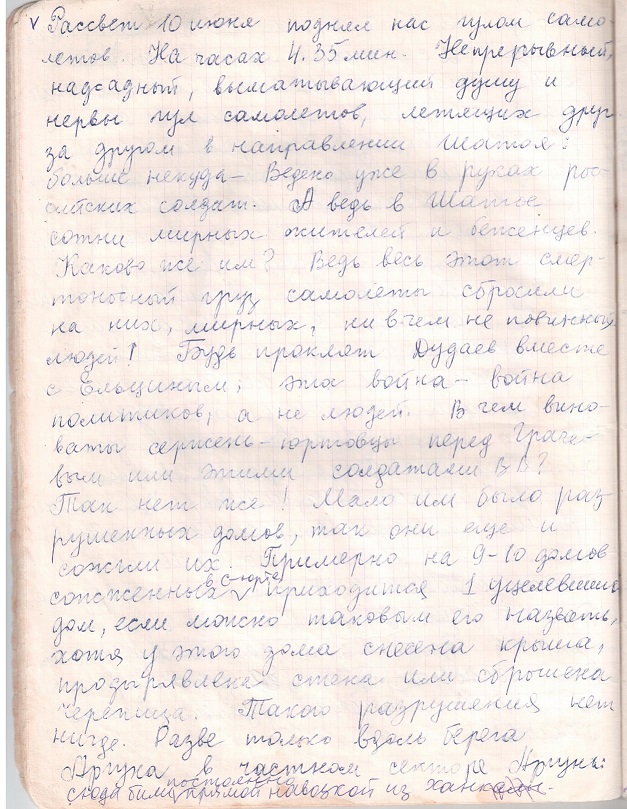 v Рассвет 10 июня поднял нас гулом само-
летов. На часах 4.35 мин. Непрерывный,
надсадный, выматывающий душу и
нервы гул самолетов, летящих друг
за другом в направлении Шатоя:
больше некуда – Ведено уже в руках рос-
сийских солдат. А ведь в Шатое
сотни мирных жителей и беженцев.
Каково же им? Ведь весь этот смер-
тоносный груз самолеты сбросили
на них, мирных, ни в чем не повинных
людей! Будь проклят Дудаев вместе
с Ельциным; эта война – война
политиков, а не людей. В чем вино-
ваты сержень-юртовцы перед Граче-
вым или этими солдатами ВВ?
Так нет же! Мало им было раз-
рушенных домов, так они еще и
сожгли их. Примерно на 9-10 домов
сожженных в С-Юрте приходится 1 уцелевший
дом, если можно таковым его назвать,
хотя у этого дома снесена крыша,
продырявлена стена или сброшена
черепица. Такого разрушения нет
нигде. Разве только вдоль берега
Аргуна в частном секторе Аргуна:
сюда били постоянно прямой наводкой из Ханкалы.